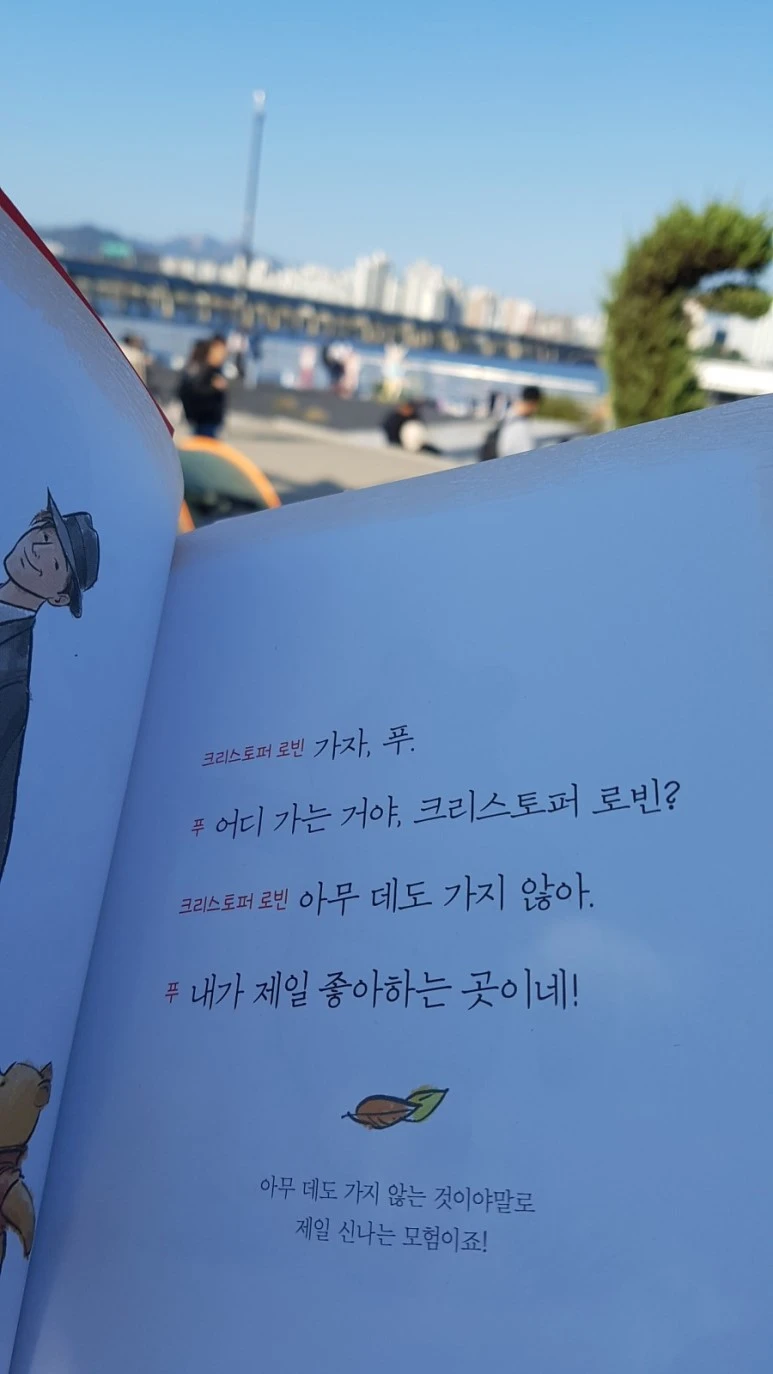 크리스토퍼 로빈 가자, 푸.
푸 어디 가는 거야, 크리스토퍼 로빈?
크리스토퍼 로빈 아무 데도 가지 않아.
푸 내가 제일 좋아하는 곳이네!
아무 데도 가지 않는 것이야말로
제일 신나는 모험이죠!